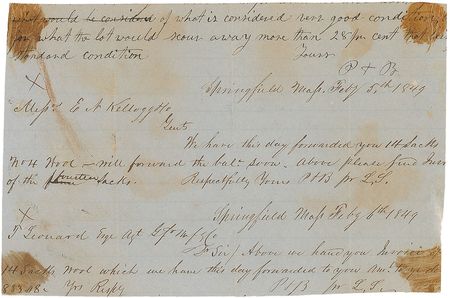 what would be considered of what is considered very good condition
for what the lot would scour away more than 28 pr cent not
standard condition Yours
P & B
Springfield Mass. Feby 5th 1849
Messrs E A Kellogg & Co
Gents
We have this day forwarded you 14 Sacks
No 4 Wool – will forward the bal. soon. Above please find Invo
of the fourteen Sacks. Respectfully Yours P & B pr L.S.
Springfield Mass Feby 6th 1849
T Leonard Esqr Agt
Sir/ Above we hand you Invoice of
14 Sacks Wool which we have this day forwarded to you Amt to
Yrs Respy P & B pr L.S.